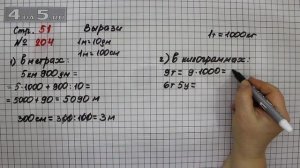 4 на 5.ru
Стр. 51
№ 204
Вырази
1м=10дм
1м=100см
1т=1000кг
1) В метрах:
5км 900дм=
=5·1000+900:10=
=5000+90=5090м
300см=300:100=3м
2) в килограммах:
9т=9·1000=
6т 5ц=